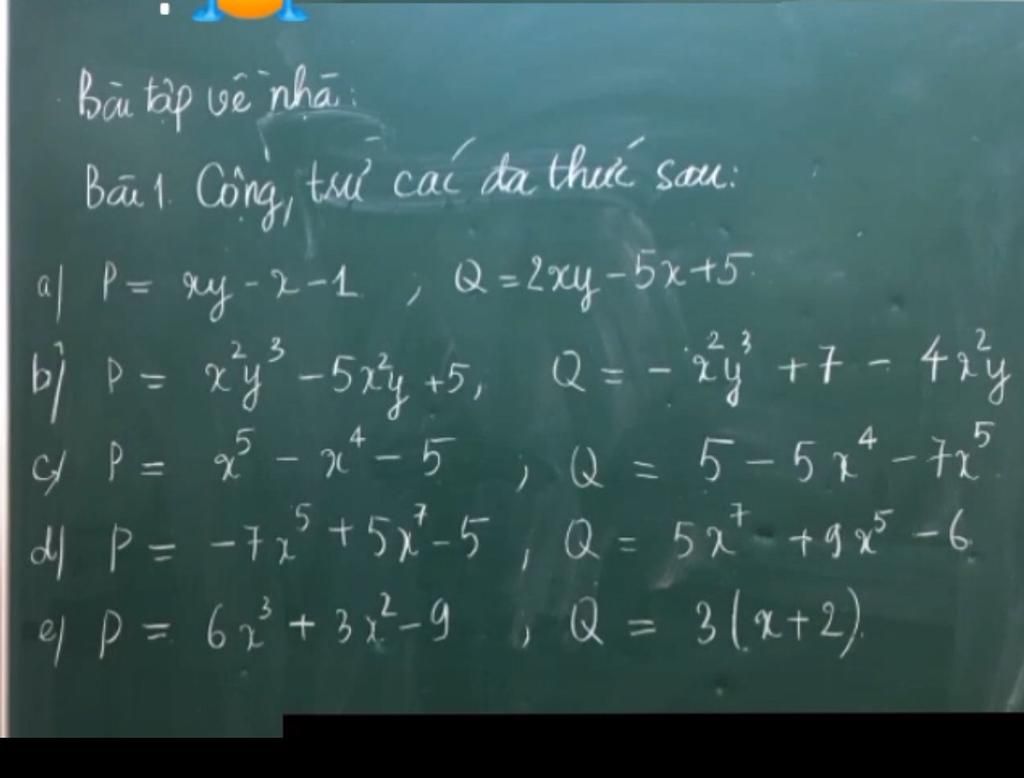 Bài tập về nhà:
Bài 1. Cộng, trừ các đa thức sau:
a) P = xy - x - 1 , Q = 2xy - 5x + 5
b) P = x²y³ - 5x²y + 5, Q = - x²y³ + 7 - 4x²y
c) P = x⁵ - x⁴ - 5 ; Q = 5 - 5x⁴ - 7x⁵
d) P = -7x⁵ + 5x⁷ - 5 , Q = 5x⁷ + 9x⁵ - 6
e) P = 6x³ + 3x² - 9 , Q = 3(x + 2)